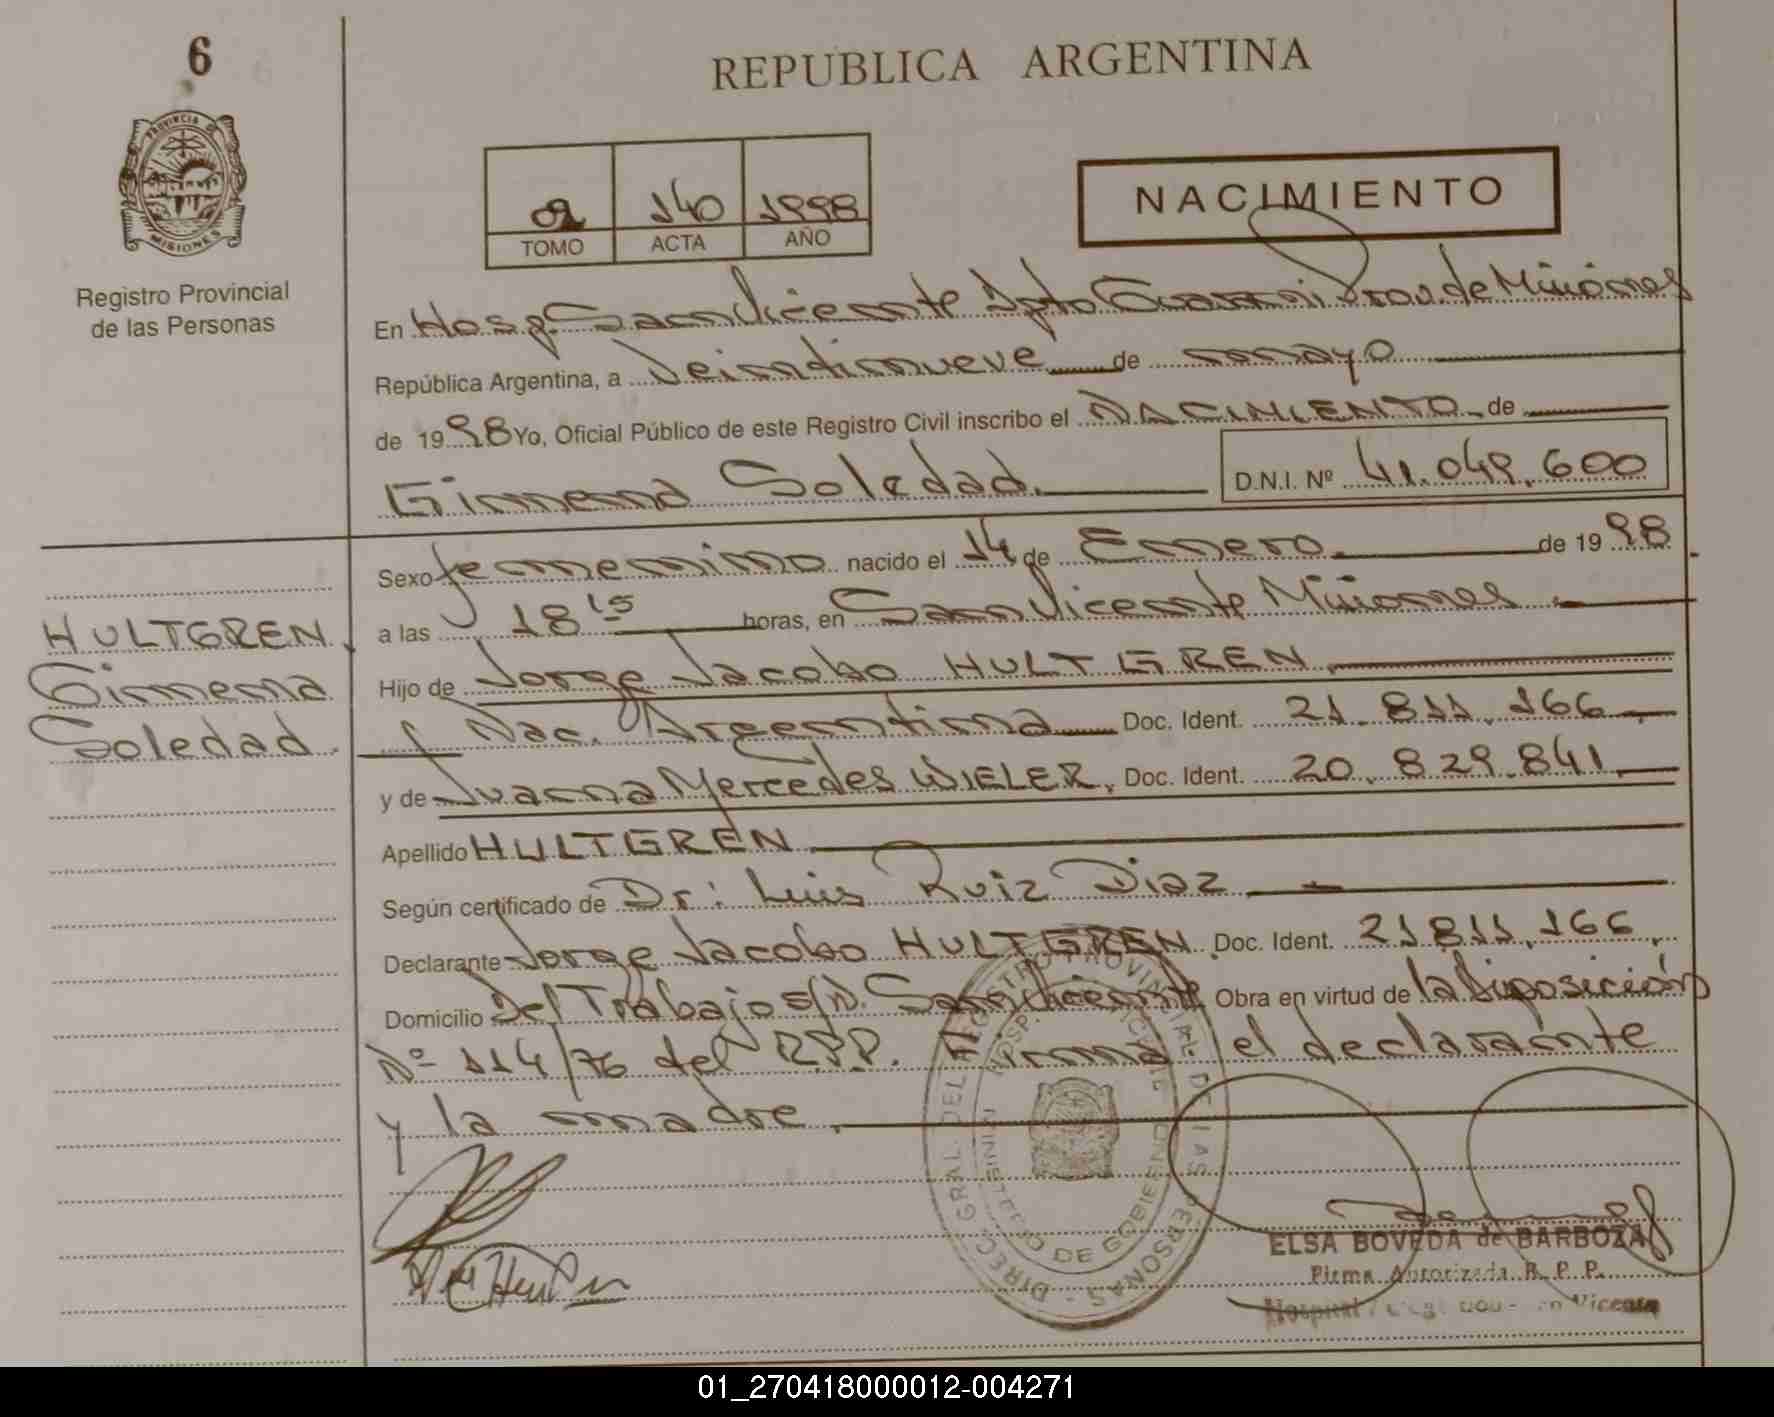 6
REPUBLICA ARGENTINA
PROVINCIA
MISIONES
Registro Provincial
de las Personas
140 1998
TOMO ACTA AÑO
NACIMIENTO
En Hosp. San Vicente Dpto Guarani Prov. de Misiones
República Argentina, a Veintinueve de mayo
de 1998 Yo, Oficial Público de este Registro Civil inscribo el NACIMIENTO de
Gimena Soledad. D.N.I. Nº 41.049.600
Sexo femenino nacido el 14 de Enero de 1998.
a las 18 15 horas, en San Vicente Misiones.
Hijo de Jorge Jacobo HULTGREN
Nac. Argentina Doc. Ident. 21.811.166
y de Juana Mercedes WIELER, Doc. Ident. 20.829.841
Apellido HULTGREN
Según certificado de Dr: Luis Ruiz Diaz
Declarante Jorge Jacobo HULTGREN. Doc. Ident. 21811.166.
Domicilio Del Trabajo s/n. San Vicente Obra en virtud de la Disposición
Nº 114/76 del R.P.P. Firma el declarante
y la madre.
HULTGREN,
Gimena
Soledad.
DIREC. GRAL. DEL REGISTRO PROVINCIAL DE LAS PERSONAS
MINISTERIO DE GOBIERNO
ELSA BOVEDA de BARBOZA
Firma Autorizada R. P. P.
Hospital Vicente
01_270418000012-004271